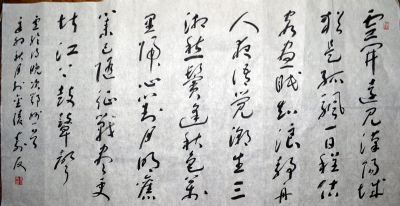 雲開遠見漢陽城
猶是孤帆一日程估
客晝眠知浪靜舟
人夜語覺潮生三
湘愁鬢逢秋色萬
里歸心對月明舊
業已隨征戰盡更
堪江上鼓鼙聲
晚次鄂州
秋月於